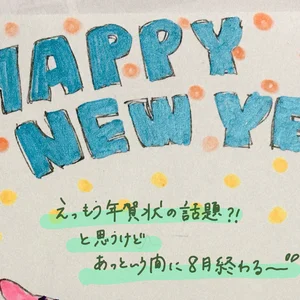 HAPPY
NEW YE
えっもう年賀状の話題?!
と思うけど
あっという間に8月終わる〜